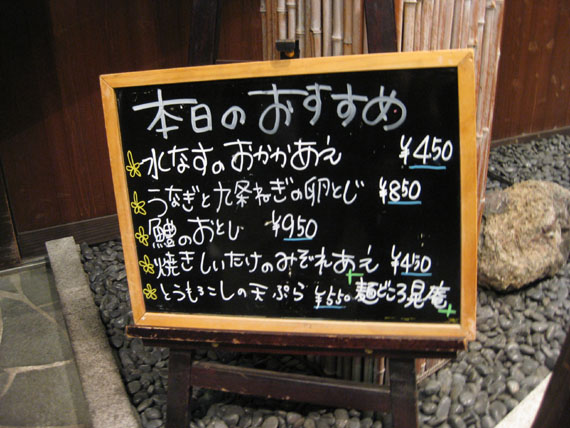 本日のおすすめ
水なすのおかかあえ ¥450
うなぎと九条ねぎの卵とじ ¥850
鱧のおとし ¥950
焼きしいたけのみぞれあえ ¥450
とうもろこしの天ぷら ¥550 麺どころ晃庵